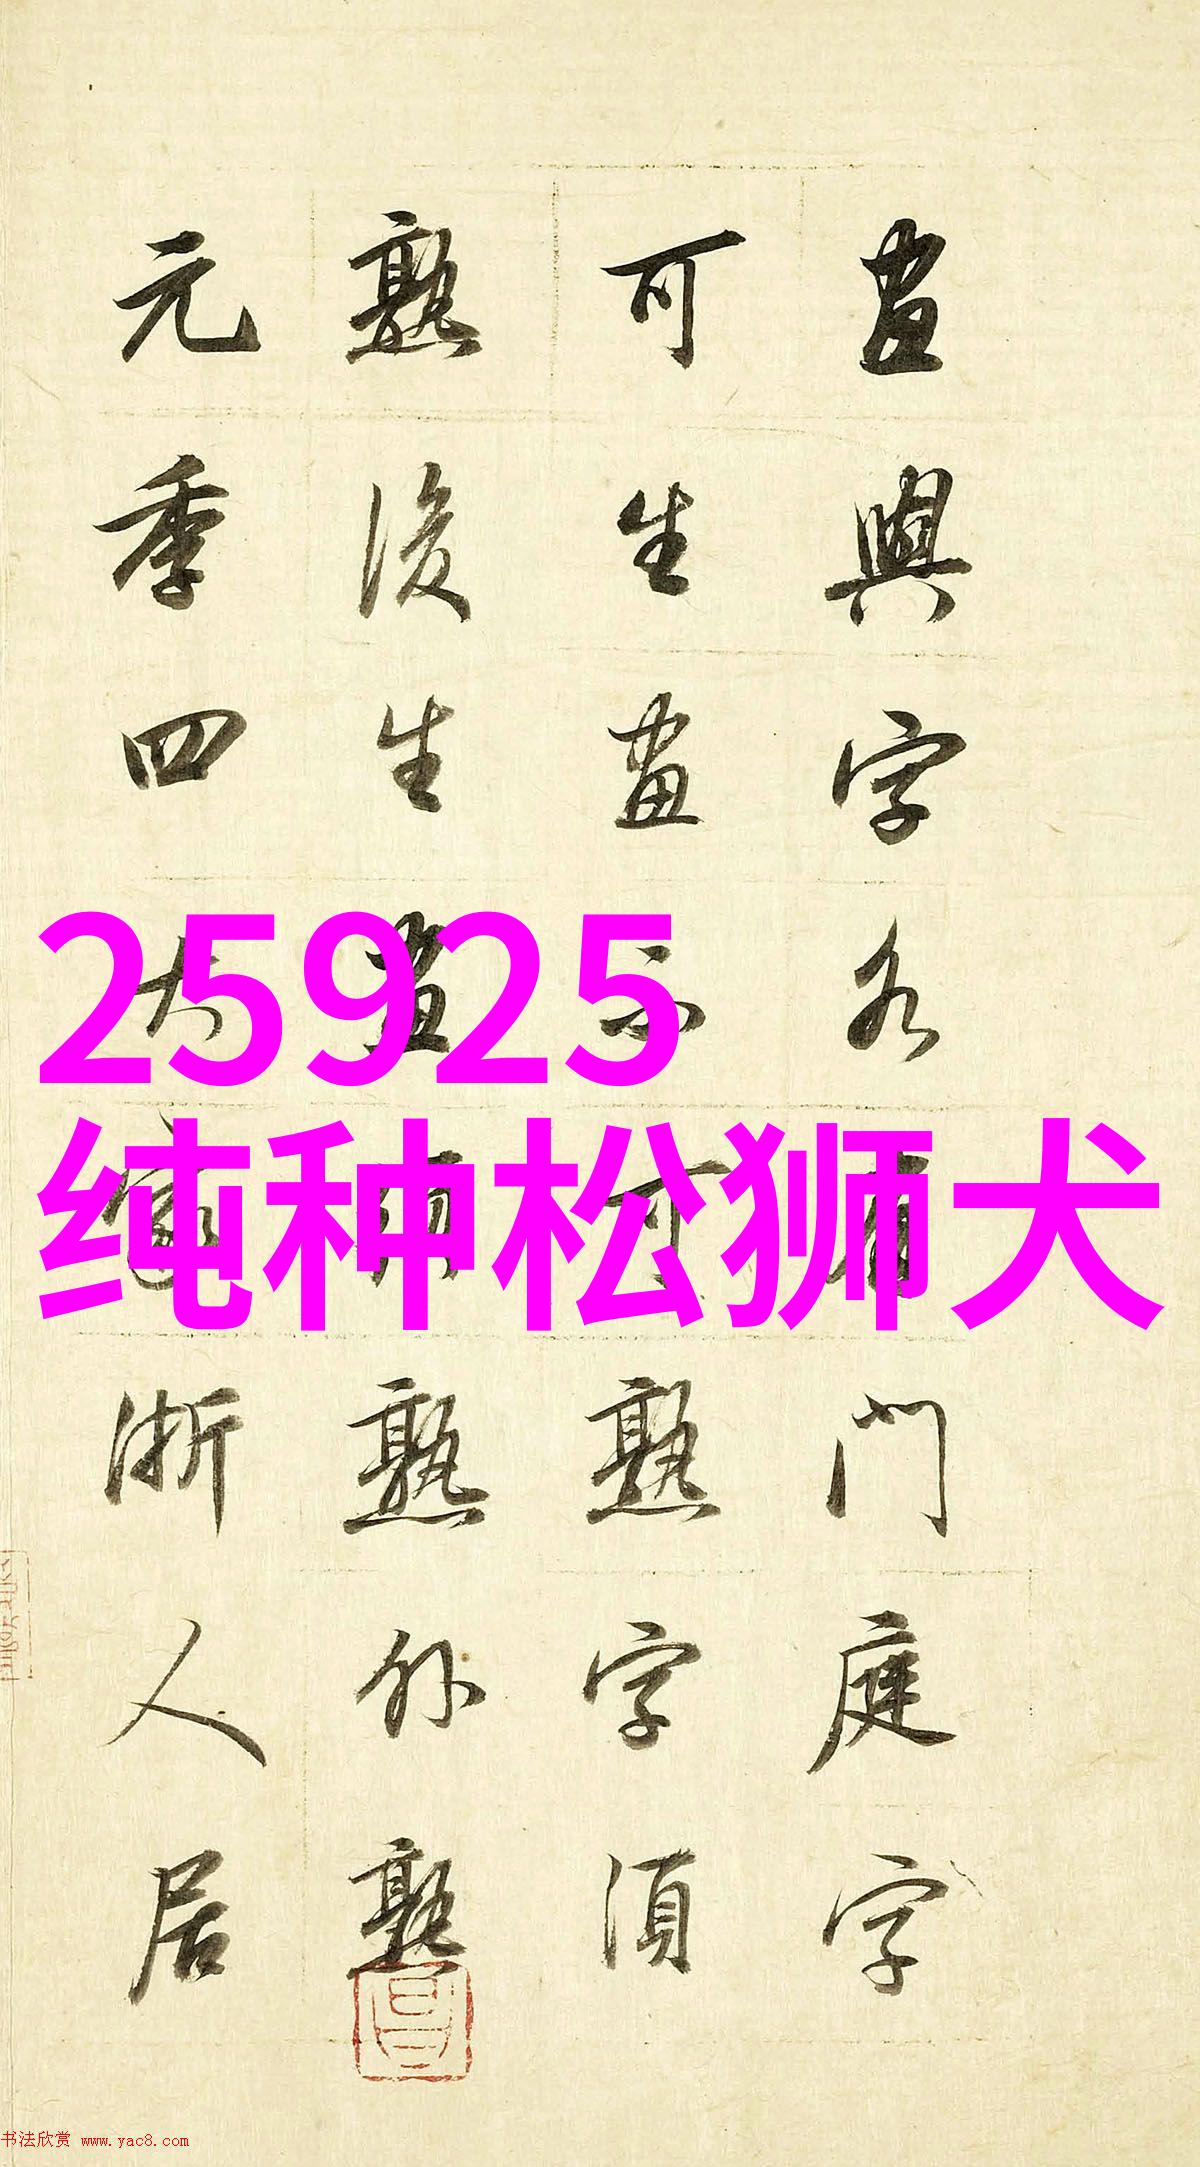 畫與字各有門庭字
可生畫不可熟字須
熟後生畫須熟外熟
元季四大家浙人居
25925
纯种松狮犬
书法欣赏 www.yac8.com